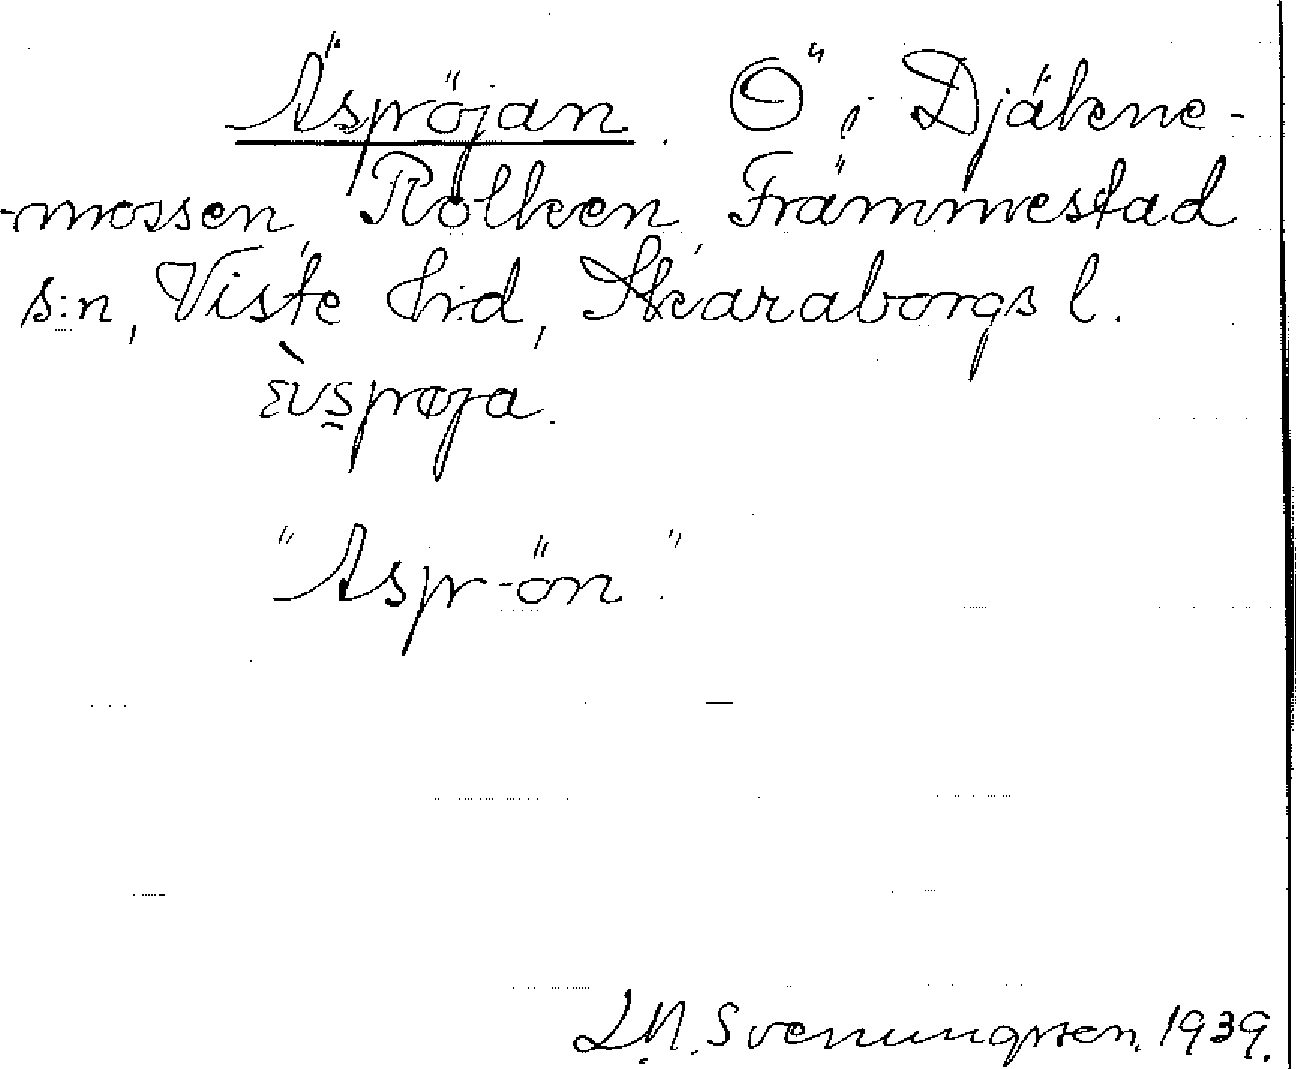 Äspröjan. Ö i Djäkne-
-mossen, Rolken, Främmestad
s:n, Viste hrd, Skaraborgs l.
ɛ̀ʋsprøja.
"Aspr-ön".
L.N. Svenungsson. 1939.